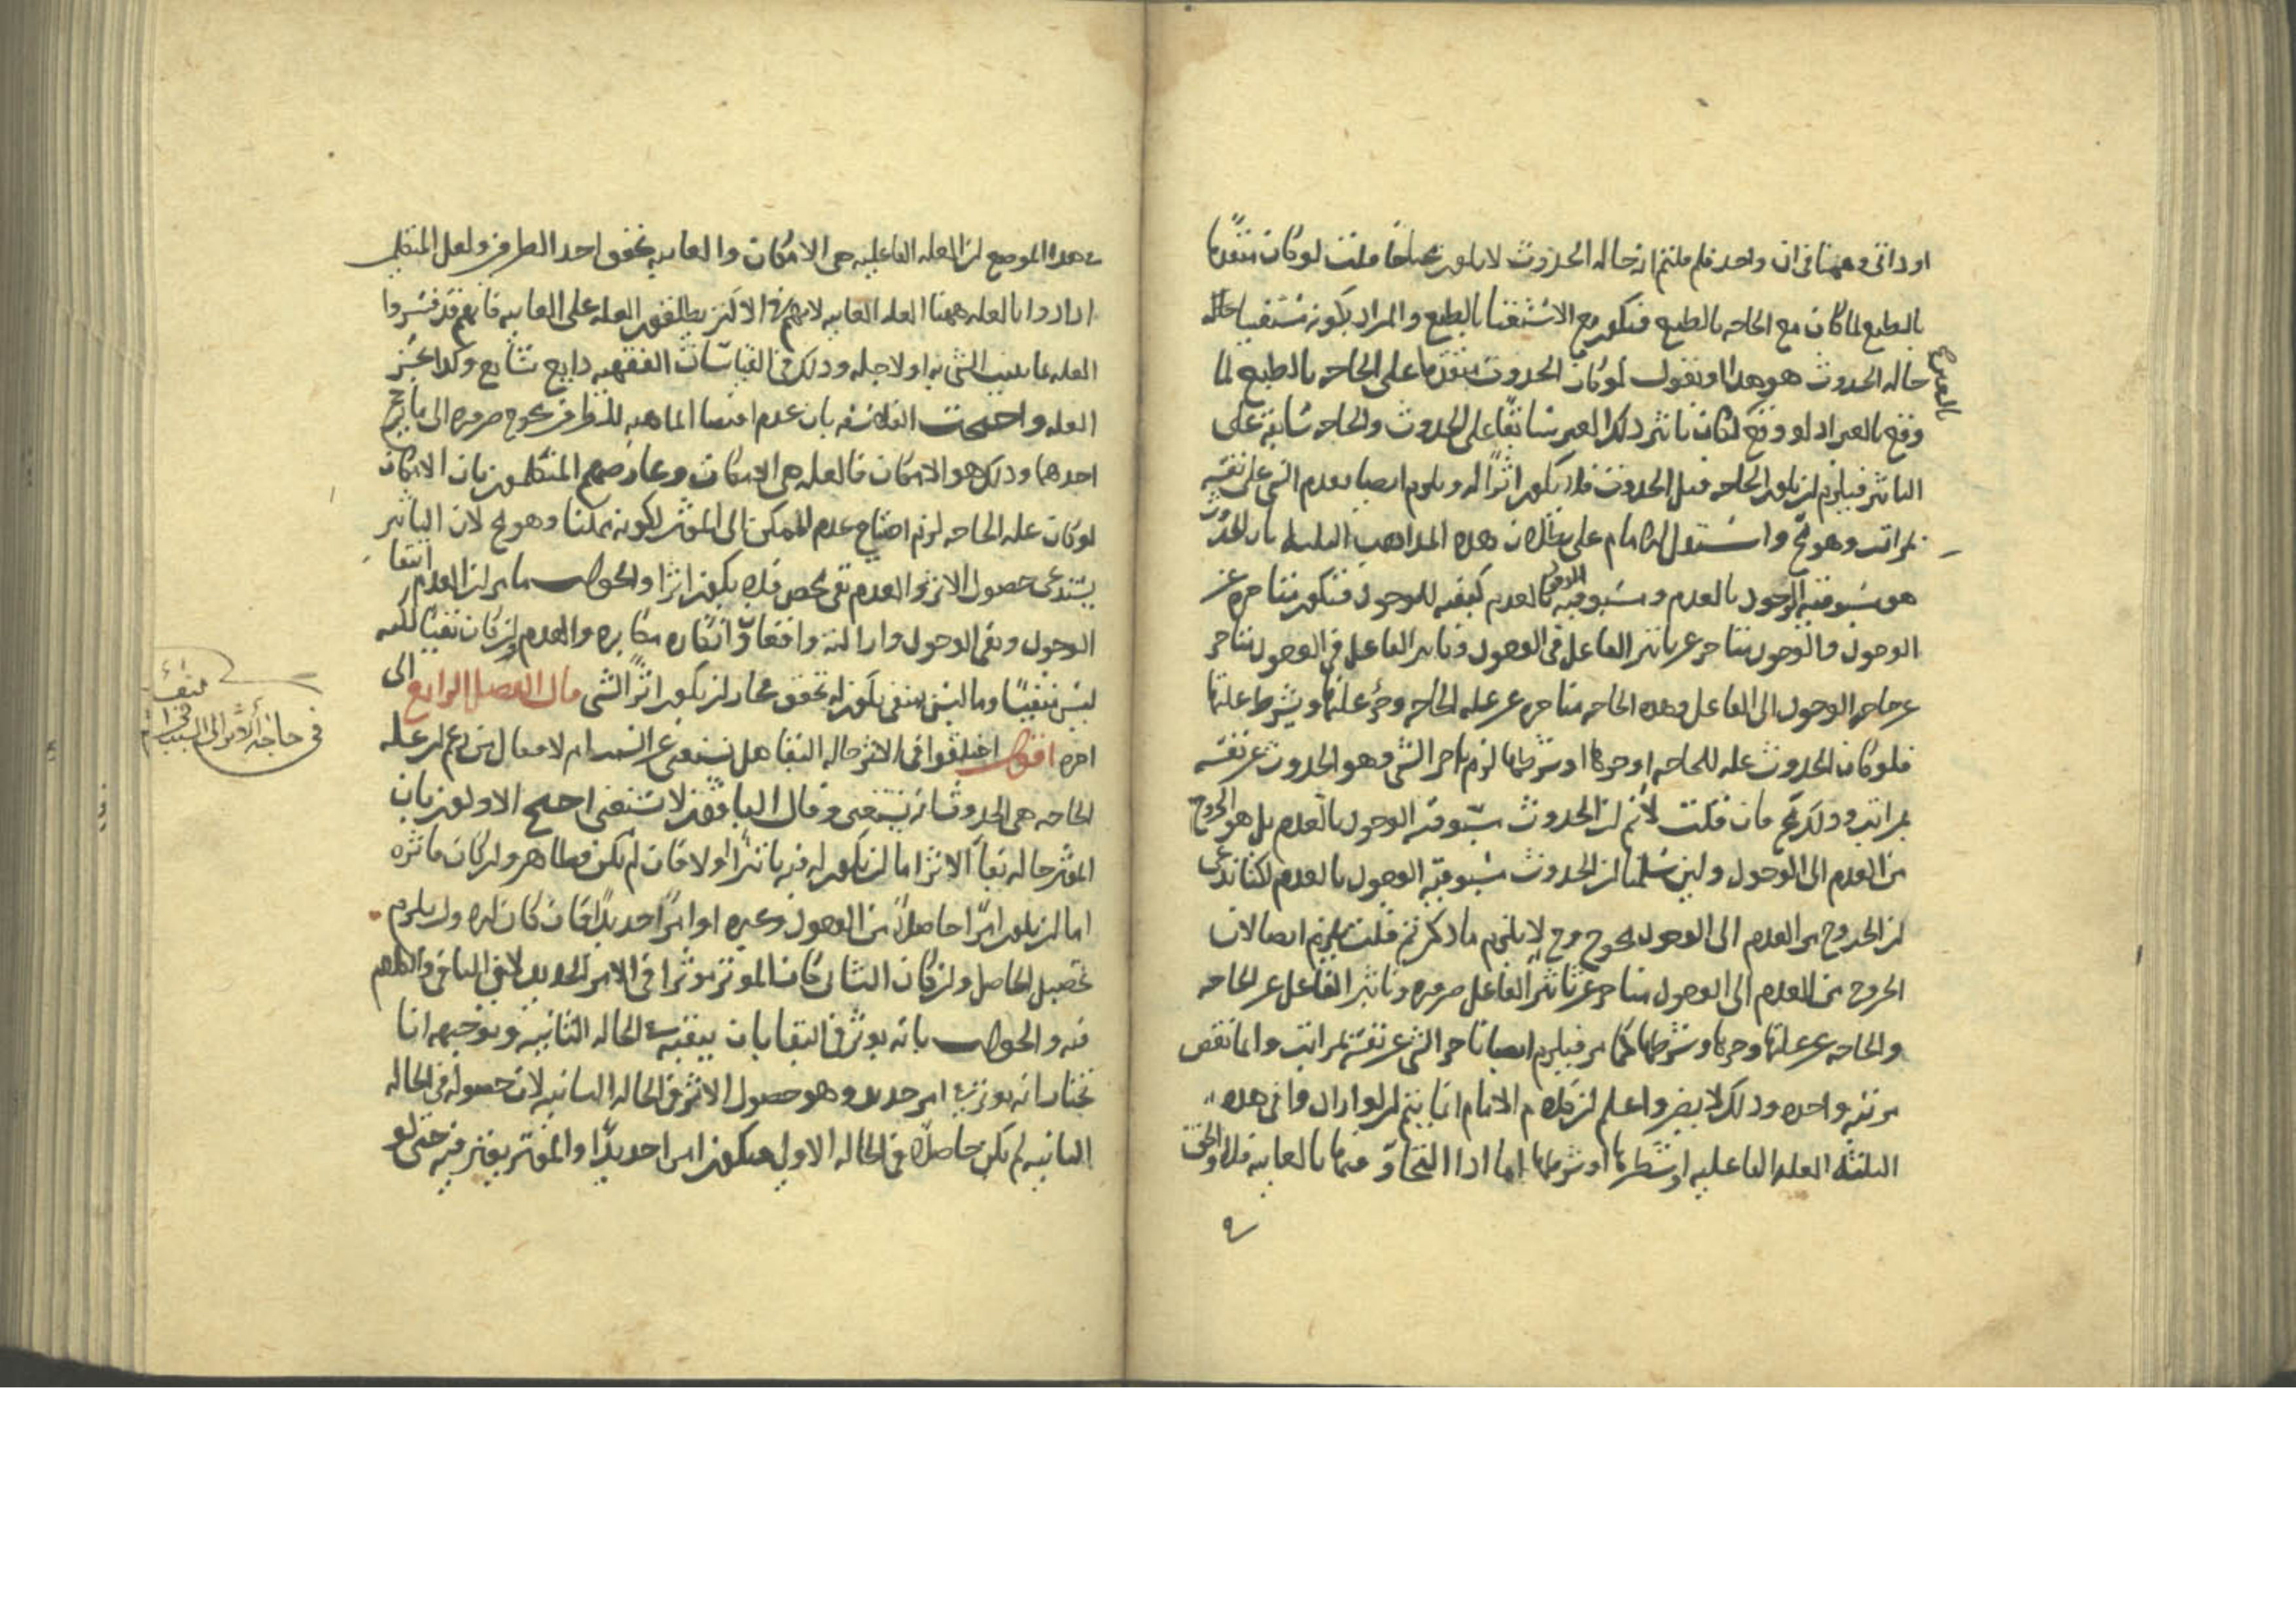 او ذاتى وههنا فى ان واحد فلم قلتم ان حاله الحدوث لا يكون محتاجا قلت لو كان متقدما
بالطبع لما كان مع الحاجه بالطبع فيكون مع الاستغنا بالطبع والمراد بكونه مستغنيا
حاله الحدوث هو هذا او نقول لو كان الحدوث متقدما على الحاجه بالطبع لما
وقع بالغير اذ لو وقع لكان تاثير ذلك الغير سابقا على الحدوث والحاجه سابقه على
التاثير فيلزم ان يكون الحاجه قبل الحدوث فلا يكون اثرا له ويلزم ايضا تقدم الشى على نفسه
بمراتب وهو مح واستدل الامام على بطلان هذه المذاهب الثلثه بان الحدوث
هو مسبوقيه الوجود بالعدم ومسبوقيه الوجود بالعدم كيفيه للوجود فيكون متاخره عن
الوجود والوجود متاخر عن تاثير الفاعل فى الوجود وتاثير الفاعل فى الوجود متاخر
عن حاجه الوجود الى الفاعل وهذه الحاجه متاخره عن عله الحاجه وجزء علتها وشرط علتها
فلو كان الحدوث عله للحاجه او جزها او شرطها لزم تاخر الشى وهو الحدوث عن نفسه
بمراتب وذلك مح فان قلت لا نم ان الحدوث مسبوقيه الوجود بالعدم بل هو الخروج
من العدم الى الوجود ولين سلمنا ان الحدوث مسبوقيه الوجود بالعدم لكنا ندعى
ان الخروج من العدم الى الوجود محوج وح لا يلزم ما ذكرتم قلت يلزم ايضا لان
الخروج من العدم الى الوجود متاخر عن تاثير الفاعل ضروره وتاثير الفاعل عن الحاجه
والحاجه عن علتها وجزها وشرطها كما مر فيلزم ايضا تاخر الشى عن نفسه بمراتب وانما نقص
مرتبه واحده وذلك لا يضر واعلم ان كلام الامام انما يتم ان لو ارادوا فى هذه
الثلثه العله الفاعليه او شطرها او شرطها اما اذا
فى هذا الموضع ان العله الفاعليه هى الامكان والغاييه تحقق احد الطرفين ولعل المتكلمين
ارادوا بالعله ههنا العله الغاييه لانهم فى الاكثر يطلقون العله على الغاييه فانهم قد فسروا
العله بما يثبت الشى به او لاجله وذلك فى القياسات الفقهيه ذايع شايع وكذا جز
العله واحتجت الفلاسفه بان عدم اقتضا الماهيه للطرفين محوج ضروره الى ما يرجح
احدهما وذلك هو الامكان فالعله هى الامكان وعارضهم المتكلمون بان الامكان
لو كان عله الحاجه لزم احتياج عدم الممكن الى الموثر لكونه ممكنا وهو مح لان التاثير
يستدعى حصول الاثر والعدم نفى محض فلا يكون اثرا والجواب ما مر ان العدم انتفا
الوجود ونفى الوجود وازالته واقعا وانكاره مكابره والعدم وان كان نفيا لكنه
ليس منفيا وما ليس بمنفى يكون له تحقق فجاز ان يكون اثرا لشى قال الفصل الرابع الى
اخره اقول اختلفوا فى الاثر حاله البقا هل يستغنى عن السبب ام لا فقال من زعم ان عله
الحاجه هى الحدوث انه يستغنى وقال الباقون لا يستغنى احتج الاولون بان
الموثر حاله بقا الاثر اما ان يكون له فيه تاثير او لا فان لم يكن فظاهر وان كان فاثره
اما ان يكون امرا حاصلا من الوجود وغيره او امرا جديدا فان كان الاول يلزم
تحصيل الحاصل وان كان الثانى كان الموثر موثرا فى الامر الجديد لا فى الباقى والكلام
فيه والجواب بانه يوثر فى البقا بان يبقيه فى الحاله الثانيه وتوجيهه انا
نختار انه يوثر فى امر جديد وهو حصول الاثر فى الحاله الثانيه لان حصوله فى الحاله
الثانيه لم يكن حاصلا فى الحاله الاولى فيكون امرا جديدا والموثر يوثر فيه حتى لو